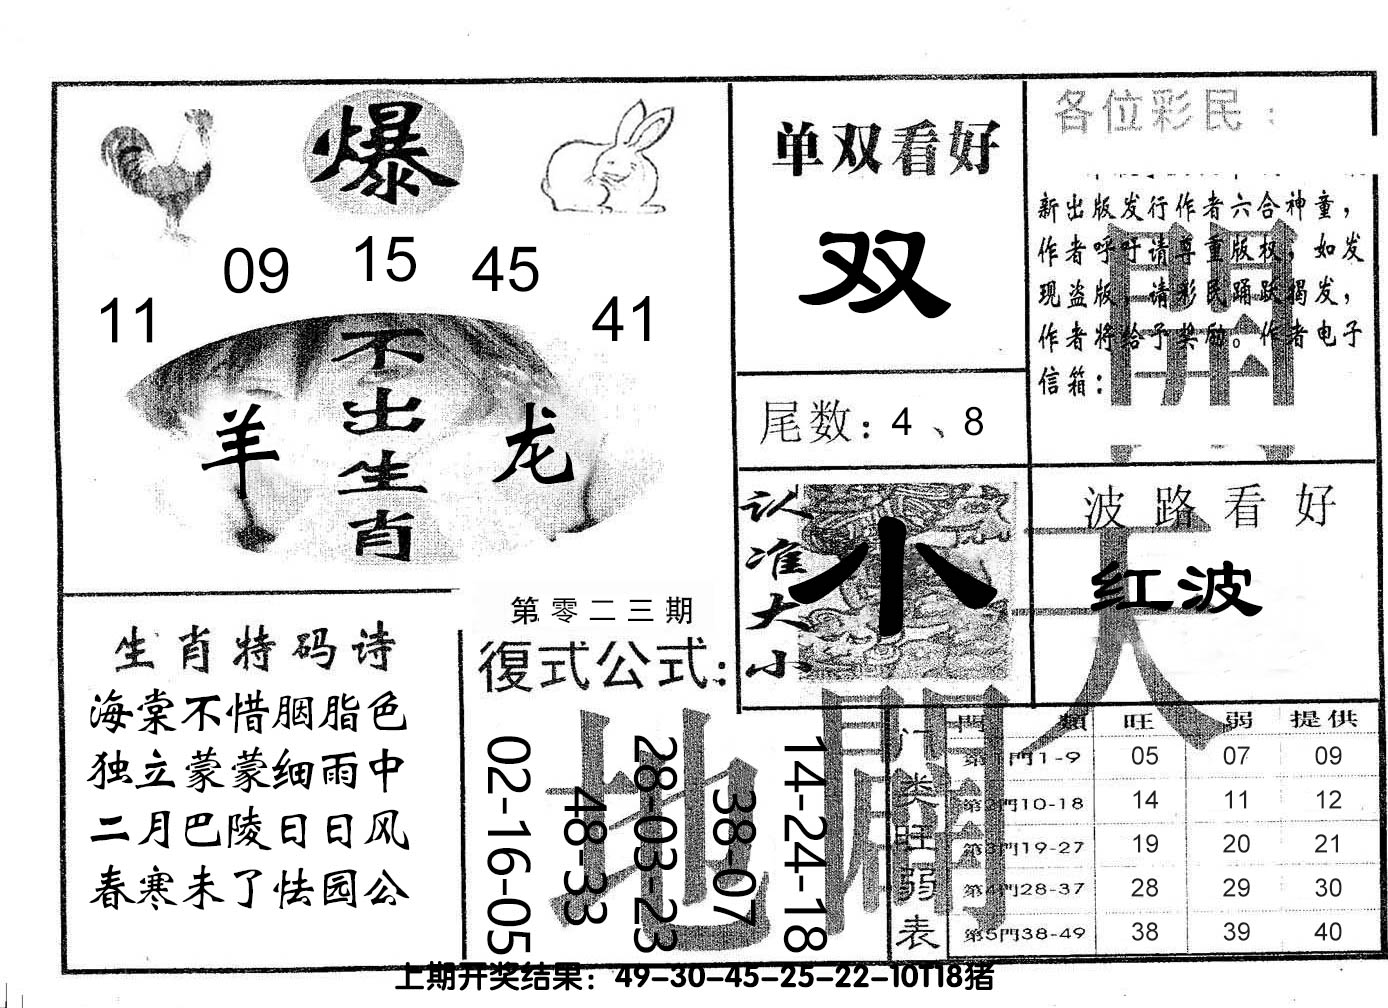 爆
11 09 15 45 41
不出生肖
羊
龙
单双看好
双
尾数：4、8
认准大小
小
各位彩民：
新出版发行作者六合神童，
作者呼吁请尊重版权，如发
现盗版，请彩民踊跃揭发，
作者将给予奖励。作者电子
信箱：
波路看好
红波
生肖特码诗
海棠不惜胭脂色
独立蒙蒙细雨中
二月巴陵日日风
春寒未了怯园公
第零二三期
復式公式：
02-16-05
48-33
28-03-23
38-07
14-24-18
天
地
開
門类旺弱表
門類 旺 弱 提供
第1門1-9 05 07 09
第2門10-18 14 11 12
第3門19-27 19 20 21
第4門28-37 28 29 30
第5門38-49 38 39 40
上期开奖结果：49-30-45-25-22-10T18猪